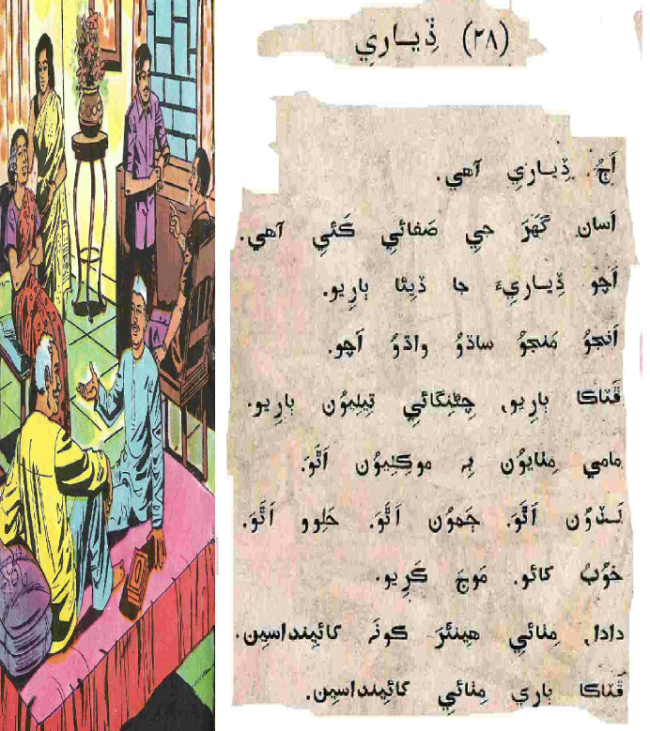 (۲۸) ڏِياري
اَڄُ ڏِيارِي آهي.
اَسان گهَرَ جي صَفائِي ڪَئِي آهي.
اَچو ڏِيارِيءَ جا ڏِيئا ٻارِيو.
اَنجوُ مَنجوُ ساڌوُ واڌوُ اَچو.
ڦَٽاڪا ٻارِيو، چِڻِنگائِي تِيلِيوُن ٻارِيو.
مامي مِٺايوُن بہ موڪِلِيوُن اَٿَوَ.
لَـڏوُن اَٿَوَ. ڄَموُن اَٿَوَ. حَلِوو اَٿَوَ.
خوُبُ کائو. مَوجَ ڪَرِيو.
دادا، مِٺائِي هِينئَرَ ڪونَہ کائِينداسِين.
ڦَٽاڪا ٻارِي مِٺائِي کائِينداسِين.